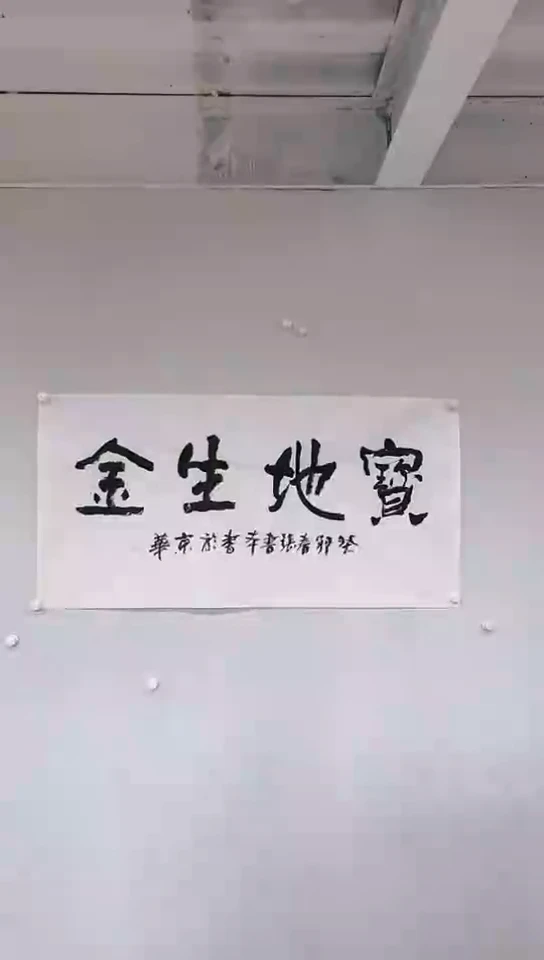 寶地生金
癸卯春張春華書於京華